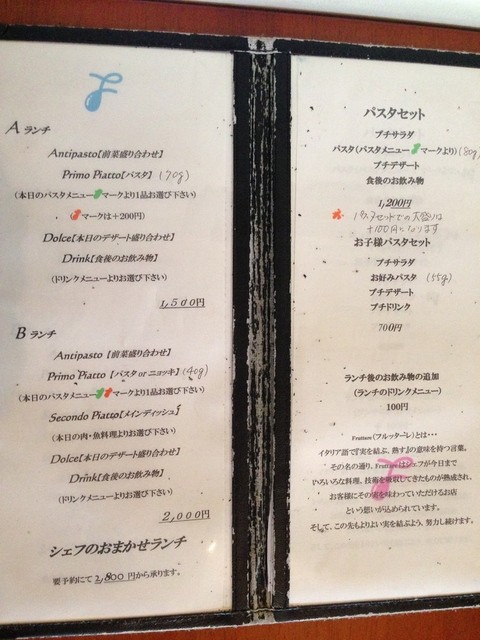 A ランチ
Antipasto【前菜盛り合わせ】
Primo Piatto【パスタ】 (70g)
(本日のパスタメニューマークより1品お選び下さい)
(マークは+200円)
Dolce【本日のデザート盛り合わせ】
Drink【食後のお飲み物】
(ドリンクメニューよりお選び下さい)
1,500円
B ランチ
Antipasto 【前菜盛り合わせ】
Primo Piatto 【パスタ or ニョッキ】 (40g)
(本日のパスタメニューマークより1品お選び下さい)
Secondo Piatto【メインディッシュ】
(本日の肉・魚料理よりお選び下さい)
Dolce【本日のデザート盛り合わせ】
Drink【食後のお飲み物】
(ドリンクメニューよりお選び下さい)
2,000円
シェフのおまかせランチ
要予約にて 2,800 円から承ります。
パスタセット
プチサラダ
パスタ(パスタメニューマークより) (80g)
プチデザート
食後のお飲み物
1,200円
パスタセットでの大盛りは
+100円になります
お子様パスタセット
プチサラダ
お好みパスタ (55g)
プチデザート
プチドリンク
700円
ランチ後のお飲み物の追加
(ランチのドリンクメニュー)
100円
Fruttare (フルッターレ) とは・・・
イタリア語で『実を結ぶ、熟す』の意味を持つ言葉。
その名の通り、Fruttare はシェフが今日まで
いろいろな料理、技術を吸収してきたものが熟成され、
お客様にその実を味わっていただけるお店
という思いが込められています。
そして、この先もよりよい実を結ぶよう、努力し続けます。